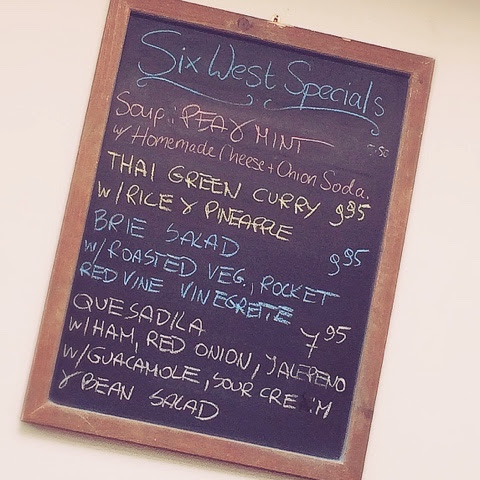 Six West Specials
Soup: PEA & MINT 5.50
w/ Homemade Cheese + Onion Soda.
THAI GREEN CURRY 9.95
w/ RICE & PINEAPPLE
BRIE SALAD 9.95
w/ ROASTED VEG., ROCKET
RED VINE VINEGRETTE
QUESADILA 7.95
w/ HAM, RED ONION, JALEPENO
w/ GUACAMOLE, SOUR CREAM
& BEAN SALAD